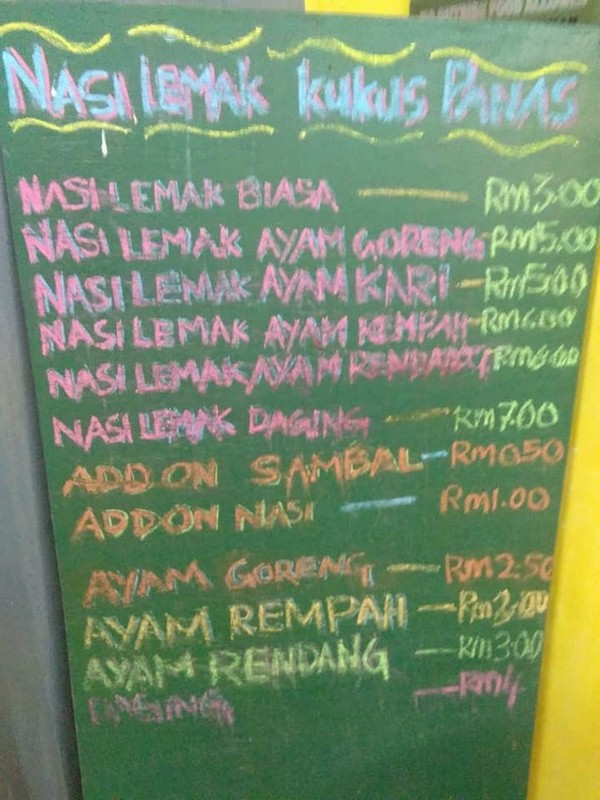 NASI LEMAK KUKUS PANAS
NASI LEMAK BIASA — RM3.00
NASI LEMAK AYAM GORENG RM5.00
NASI LEMAK AYAM KARI — RM5.00
NASI LEMAK AYAM REMPAH - RM6.00
NASI LEMAK AYAM RENDANG RM6.00
NASI LEMAK DAGING — RM7.00
ADD ON SAMBAL - RM0.50
ADD ON NASI — RM1.00
AYAM GORENG — RM2.50
AYAM REMPAH — RM3.00
AYAM RENDANG — RM3.00
DAGING — RM4